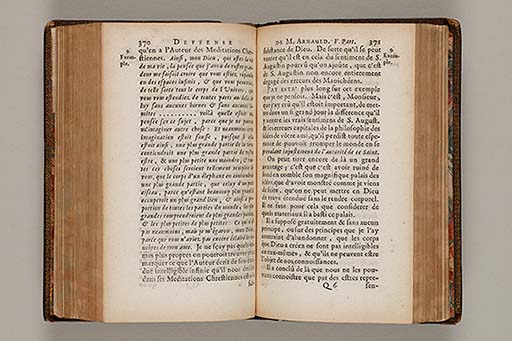 370 DEFFENSE
9. Exemple.
qu'en a l'Auteur des Meditations Chrestiennes. Ainsi, mon Dieu, que estes la vie
de ma vie, la
deur me faisoit croire que vous estiez,
les espaces infinis, & que vous
de telle sorte tout le corps de l'Univers,
vous vous estendiez de toutes parts au delà
luy sans aucunes bornes & sans aucunes
mites .......... voilà quelle estoit
pensée sur ce sujet, parce que je ne pouvois
m'imaginer autre chose: Et neanmoins
imagination estoit fausse, puisque si
estoit ainsi, une plus grande partie de la terre
contiendroit une plus grande partie de vostre
estre, & une plus petite une moindre, &
tes ces choses seroient tellement remplies de
vous, que le corps d'un éléphant en contiendroit
une plus grande partie, que celuy d'un
oiseau, parce qu'estant beaucoup plus grand
occuperoit un plus grand lieu, & ainsi à
portion de toutes les parties du monde, les plus
grandes comprendroient de plus grandes parties
& les plus petites de plus petites. Ce n'est
pas neanmoins, mais je m'égarois, mon Dieu,
parce que vous n'aviez pas encore éclairé les
nebres de mon ame. Je ne sçay pas quels
mes plus propres on pourroit trouver pour
marquer ce que l'Auteur écrit de son
duë intelligible infinie qu'il nous
dans ses Meditations Chrestiennes
DE M. ARNAULD. V. Part. 371
9. Exemple.
substance de Dieu. De sorte qu'il se peut
vanter qu'il est en cela du sentiment de S.
Augustin pourvû qu'on ajoûte, que c'est
de S. Augustin non encore entierement
dégagé des erreurs des Manichéens.
J'AY ESTE' plus long sur cet exemple
que je ne pensois. Mais c'est, Monsieur,
que j'ay crû qu'il estoit important, de mettre
dans un si grand jour la difference qu'il
y a entre les vrais sentimens de S. August.
& les erreurs capitales de la philosophie des
idées de vôtre ami, qu'il perdist toute esperance
de pouvoir tromper le monde en se
prevalant injustement de l'autorité de ce Saint.
On peut tirer encore de là un grand
avantage; c'est que c'est avoir ruiné de
fond en comble son magnifique palais des
idées, que d'avoir monstré comme je viens
de faire, qu'on ne peut mettre en Dieu
de vraye étenduë sans le rendre corporel.
Il ne faut pour cela que considerer de
quels materiaux il a basti ce palais.
Il a supposé gratuitement & sans aucun
principe, ou sur des principes que je l'ay
contraint d'abandonner, que les corps
que Dieu a créés ne sont pas intelligibles
par eux-mêmes, & qu'ils ne peuvent estre
l'objet de nos connoissances.
Il a conclu de là que nous ne les pouvons
connoistre que par des estres repre-
Q 6 sen-